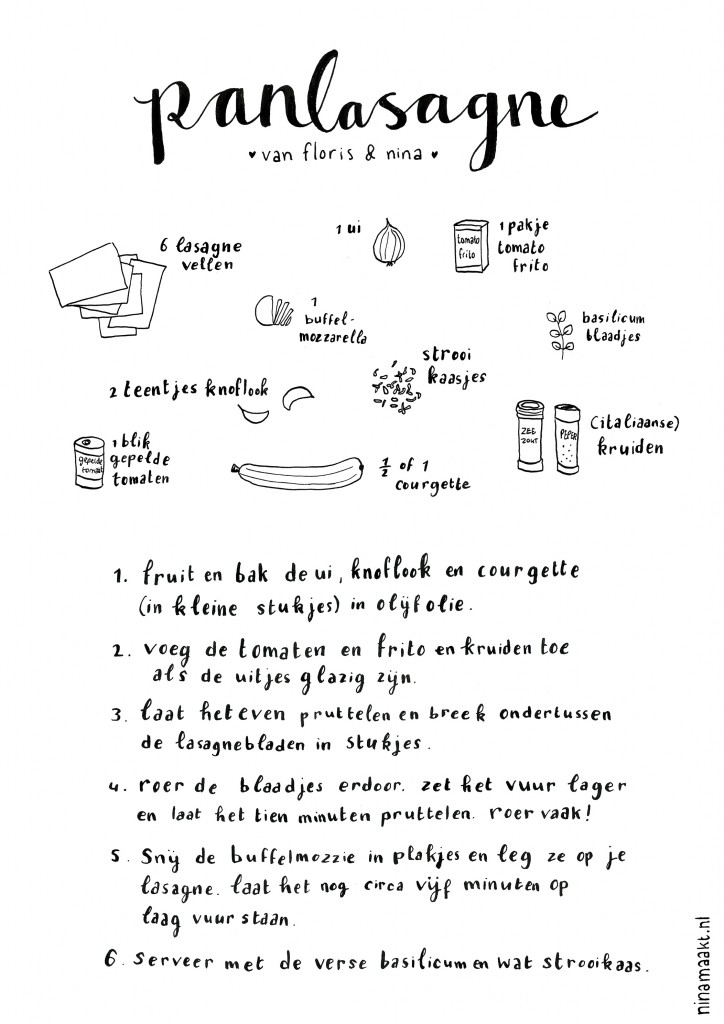 panlasagne
van floris & nina
6 lasagne
vellen
1 ui
tomato
frito
1 pakje
tomato
frito
1
buffel-
mozzarella
basilicum
blaadjes
strooi
kaasjes
2 teentjes knoflook
1 blik
gepelde
tomaten
gepelde
tomaat
1/2 of 1
courgette
ZEE
ZOUT
PEPER
(italiaanse)
kruiden
1. fruit en bak de ui, knoflook en courgette
(in kleine stukjes) in olijfolie.
2. voeg de tomaten en frito en kruiden toe
als de uitjes glazig zijn.
3. laat het even pruttelen en breek ondertussen
de lasagnebladen in stukjes.
4. roer de blaadjes erdoor. zet het vuur lager
en laat het tien minuten pruttelen. roer vaak!
5. Snij de buffelmozzie in plakjes en leg ze op je
lasagne. laat het nog circa vijf minuten op
laag vuur staan.
6. serveer met de verse basilicum en wat strooikaas.
ninamaakt.nl